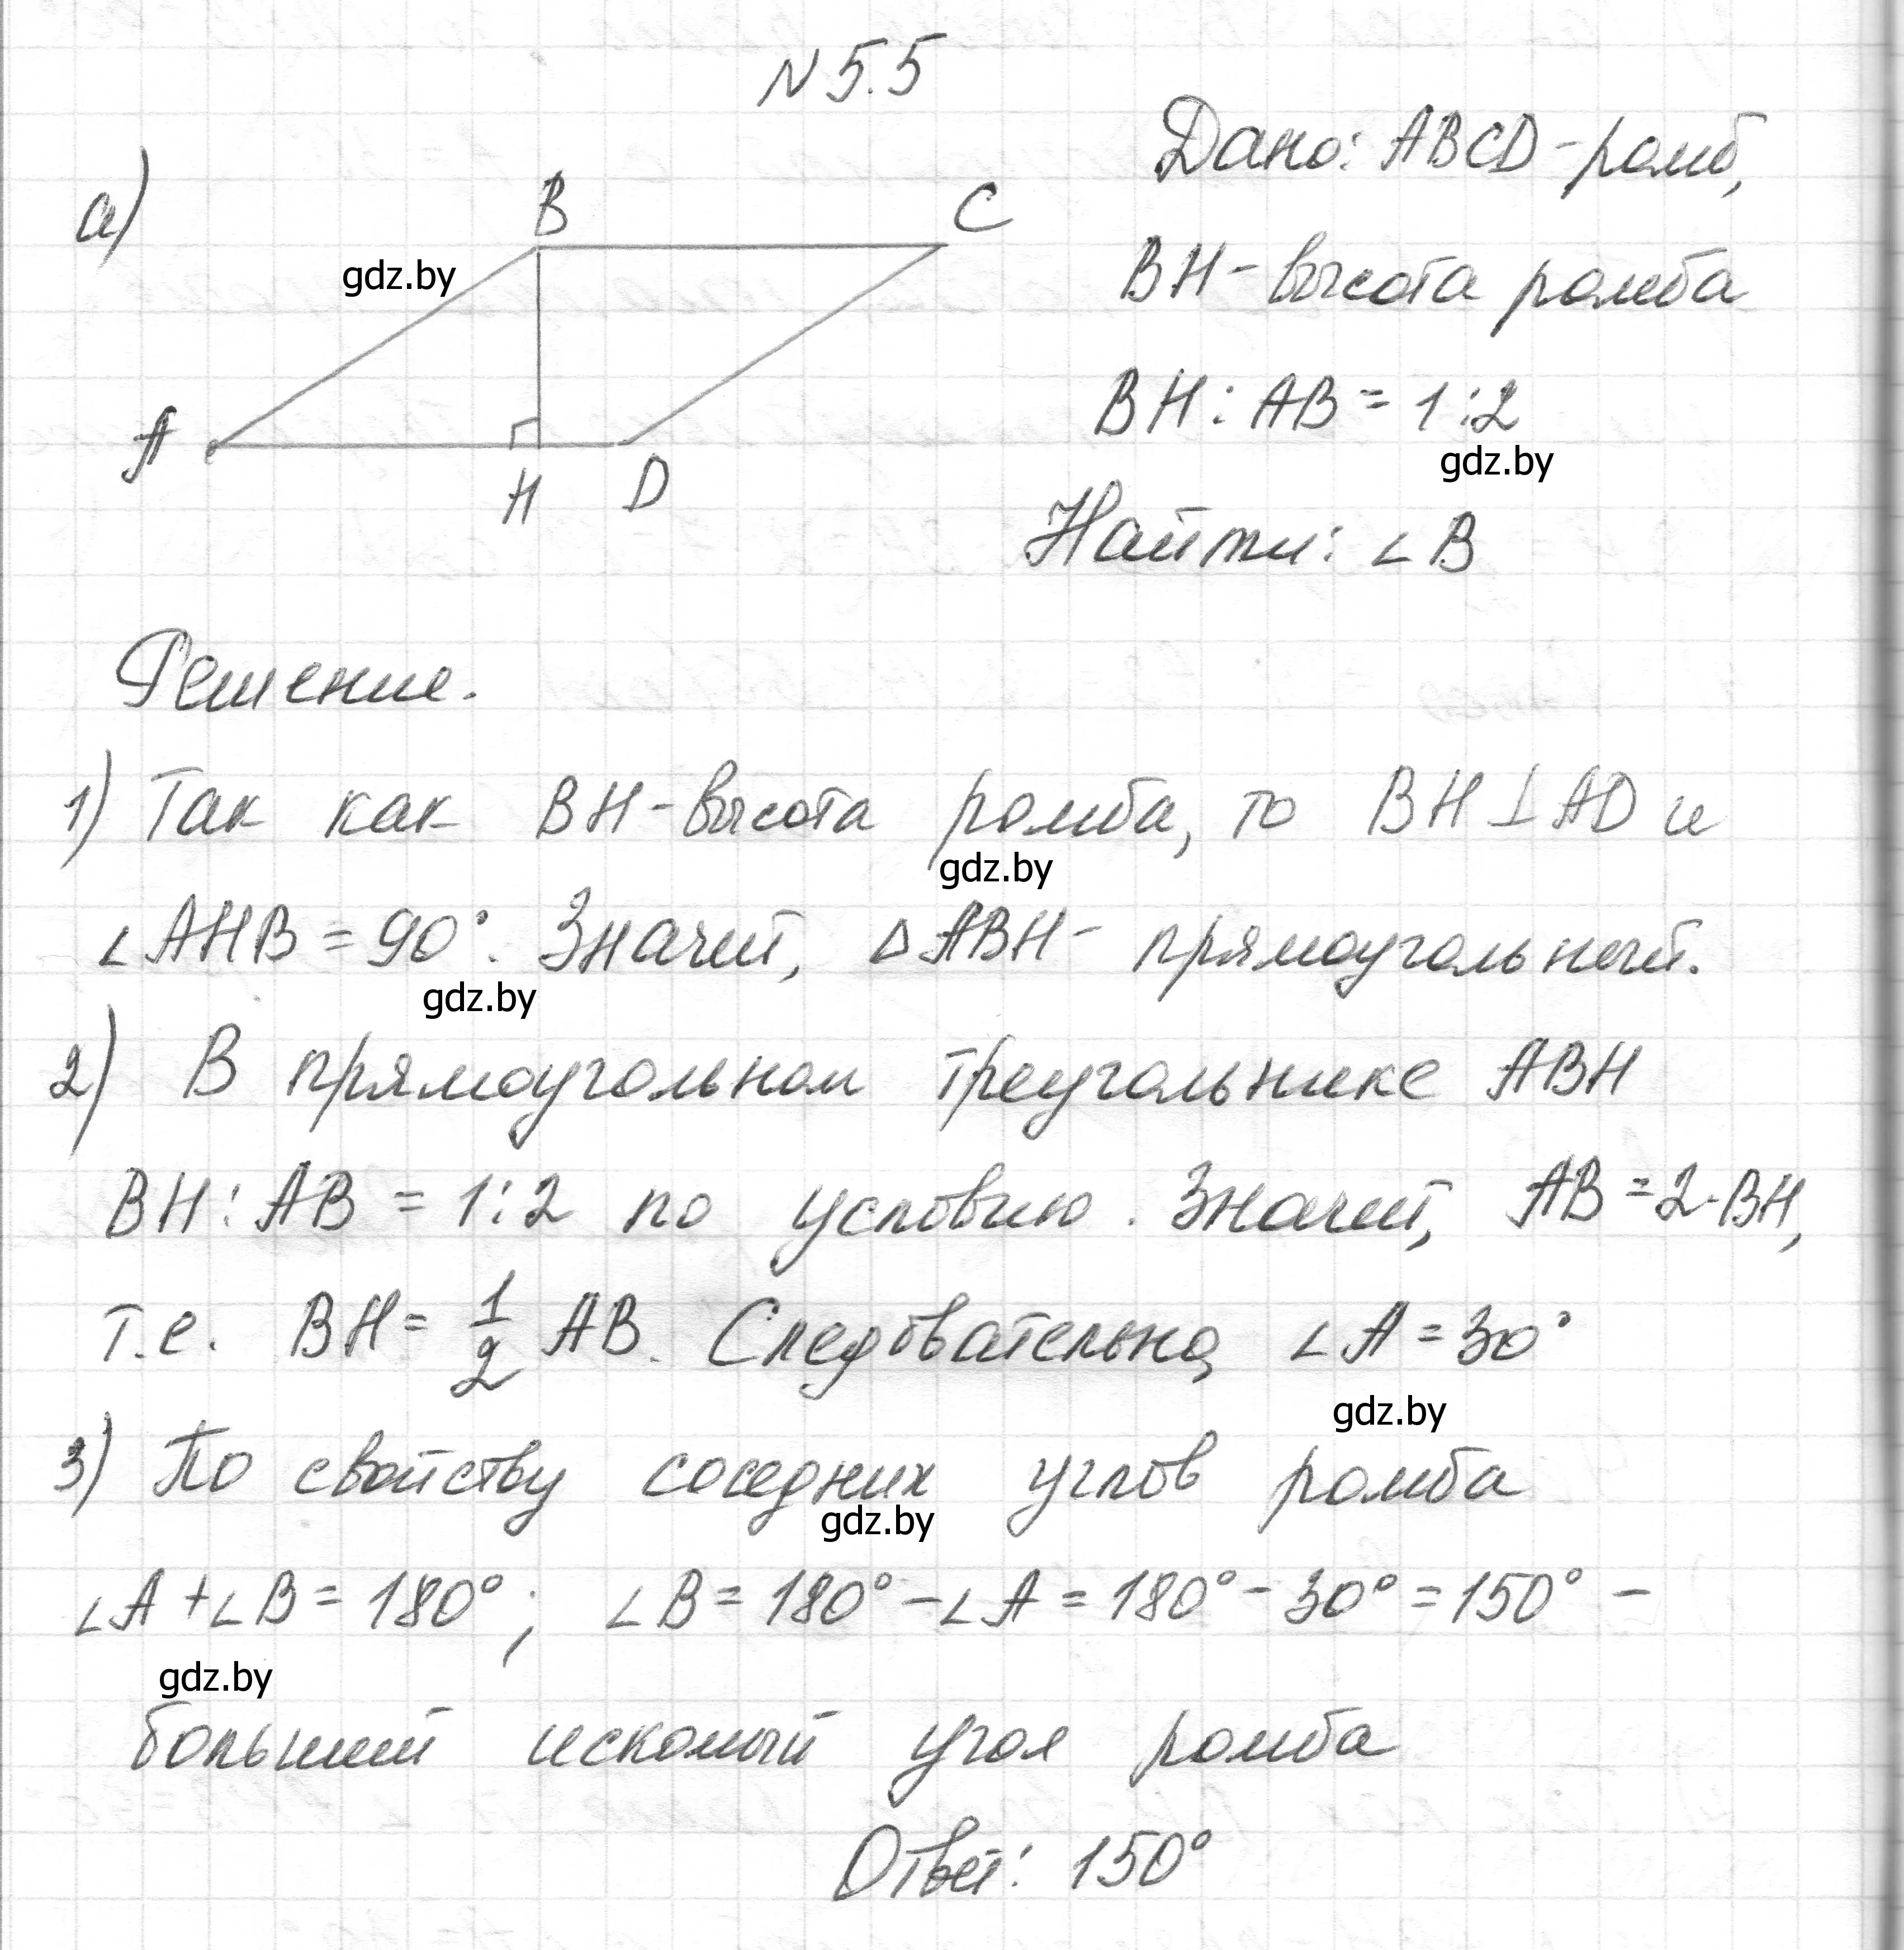 N 5.5
а)
Дано: ABCD - ромб,
BH - высота ромба
BH : AB = 1 : 2
gdz.by
Найти: ∠B
B
C
gdz.by
A
H
D
Решение.
1) Так как BH - высота ромба, то BH ⊥ AD и
gdz.by
∠AHB = 90°. Значит, △ABH - прямоугольный.
gdz.by
2) В прямоугольном треугольнике ABH
BH : AB = 1 : 2 по условию. Значит, AB = 2·BH,
т.е. BH = 1/2 AB. Следовательно, ∠A = 30°
gdz.by
3) По свойству соседних углов ромба
gdz.by
∠A + ∠B = 180°; ∠B = 180° - ∠A = 180° - 30° = 150° -
gdz.by
больший искомый угол ромба
Ответ: 150°